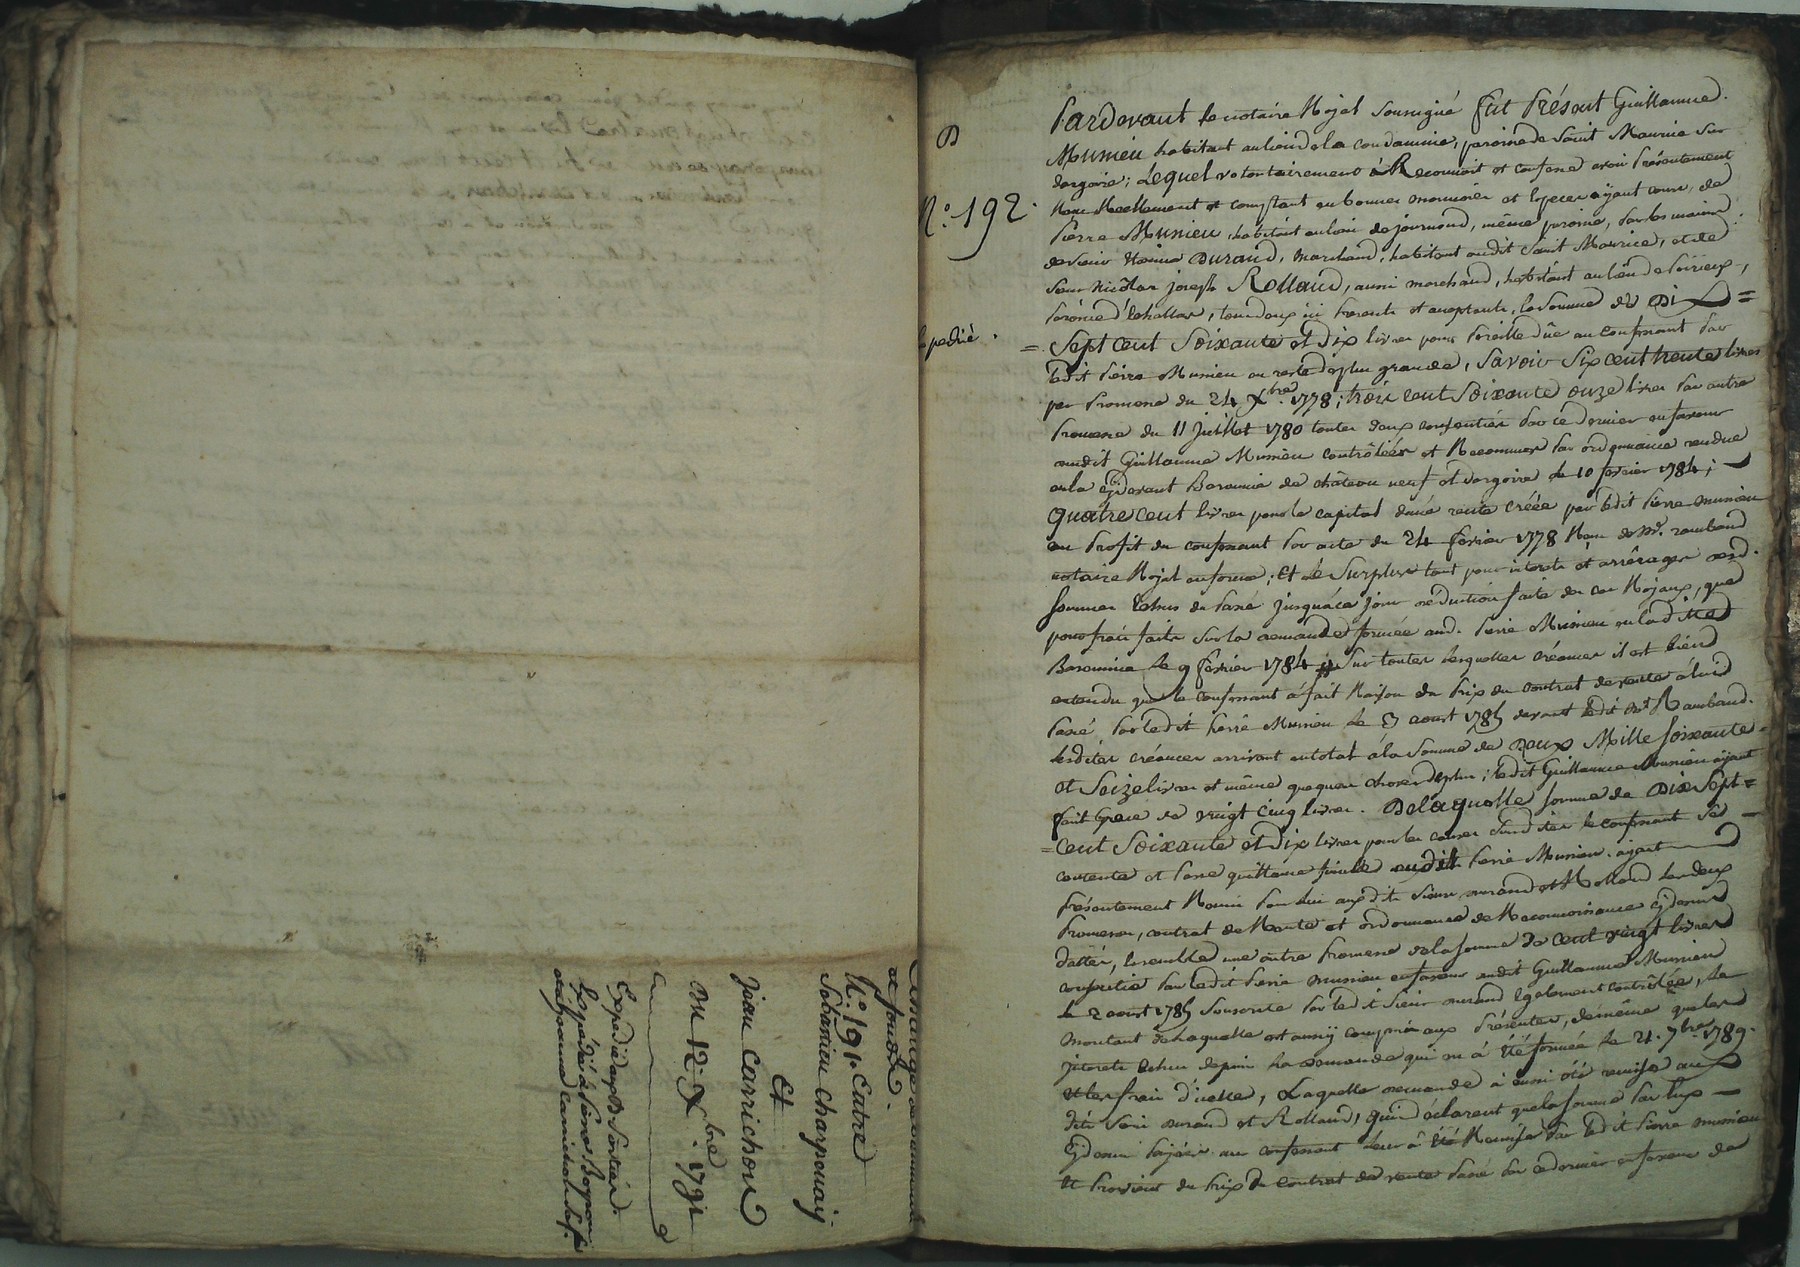 Echange de bâtiments
et fonds.
N.o 191. Entre
Sébastien Charpenay
Et
Jean Carrichon
Du 12 Xbre 1791
Expédié aux Parties.
P
N.o 192.
Expédié.
Pardevant le notaire Royal soussigné fut Présent Guillaume
Musnieu habitant au lieu de la condamine, paroisse de Saint Maurice sur
dargoire; Lequel volontairement à Reconnoit et confesse avoir Présentement
Reçu Réellement et comptant en bonnes monnoies et especes ayant cours, de
Pierre Musnieu, habitant au lieu de journoud, même paroisse, Par les mains
de sieur Etienne Durand, Marchand, habitant audit Saint Maurice, et de
Sieur Nicolas joseph Rolland, aussi marchand, habitant au lieu de
Paroisse d'Echallas, tous deux ici Presents et acceptants, la somme de Dix =
= Sept cent Soixante et dix livres pour Pareille düe au confessant Par
ledit Pierre Musnieu en reste de plus grande, Savoir Six cent trente livres
par Promesse du 24 Xbre 1778; trois cent Soixante onze livres Par autre
Promesse du 11 juillet 1780 toutes deux consenties Par ce dernier en faveur
audit Guillaume Musnieu contrôlées et Reconnues Par ordonnance rendue
en la cydevant Baronnie de château neuf et dargoire le 10 février 1784;
quatre cent livres pour le capital d'une rente créée par ledit Pierre Musnieu
au Profit du confessant Par acte du 24 février 1778 Reçu de Me. rambaud
notaire Royal en forme; et le Surplus tant pour interets et arrérages desd.
sommes Echus du Passé jusqu'à ce jour réduction faite des cas Royaux, que
pour frais faits Sur la demande formée aud. Pierre Musnieu en la ditte
Baronnie le 9 février 1784 Sur toutes lesquelles créances il est bien
entendu que le confessant à fait Raison du Prix du contrat de vente à lui
Passé Par ledit Pierre Musnieu le 3 aoust 1785 devant ledit Me Rambaud.
lesdites créances arrivant en total à la Somme de Deux Mille Soixante
et Seize livres et même quelque chose de plus; ledit Guillaume Musnieu ayant
fait Grace de vingt cinq livres. De laquelle somme de Dix Sept =
= cent Soixante et dix livres pour les causes Susdites le confessant Se
contente et Passe quittance finale audit Pierre Musnieu. ayant
Présentement Remis Pour lui auxdits Sieurs Durand et Rolland les deux
Promesses, contrat de Rente et ordonnance de Reconnoissance cydevant
dattés, Ensemble une autre Promesse de la somme de cent vingt livres
consentie Par ledit Pierre Musnieu en faveur audit Guillaume Musnieu
le 2 aoust 1785 Souscrite Par ledit Sieur Durand Egalement contrôlée, le
montant de laquelle est aussy compris aux Présentes, de même que les
jnterets Echus depuis la demande qui en à été formée le 21. 7bre 1789.
et les frais d'icelle, Laquelle demande à aussi été remise aux
dits Srs Durand et Rolland, qui déclarent que la somme Par Eux
Cydessus Payée au confessant leur à été Remise Par ledit Pierre Musnieu
et Provient du Prix du contrat de vente Passé Par ce dernier en faveur de